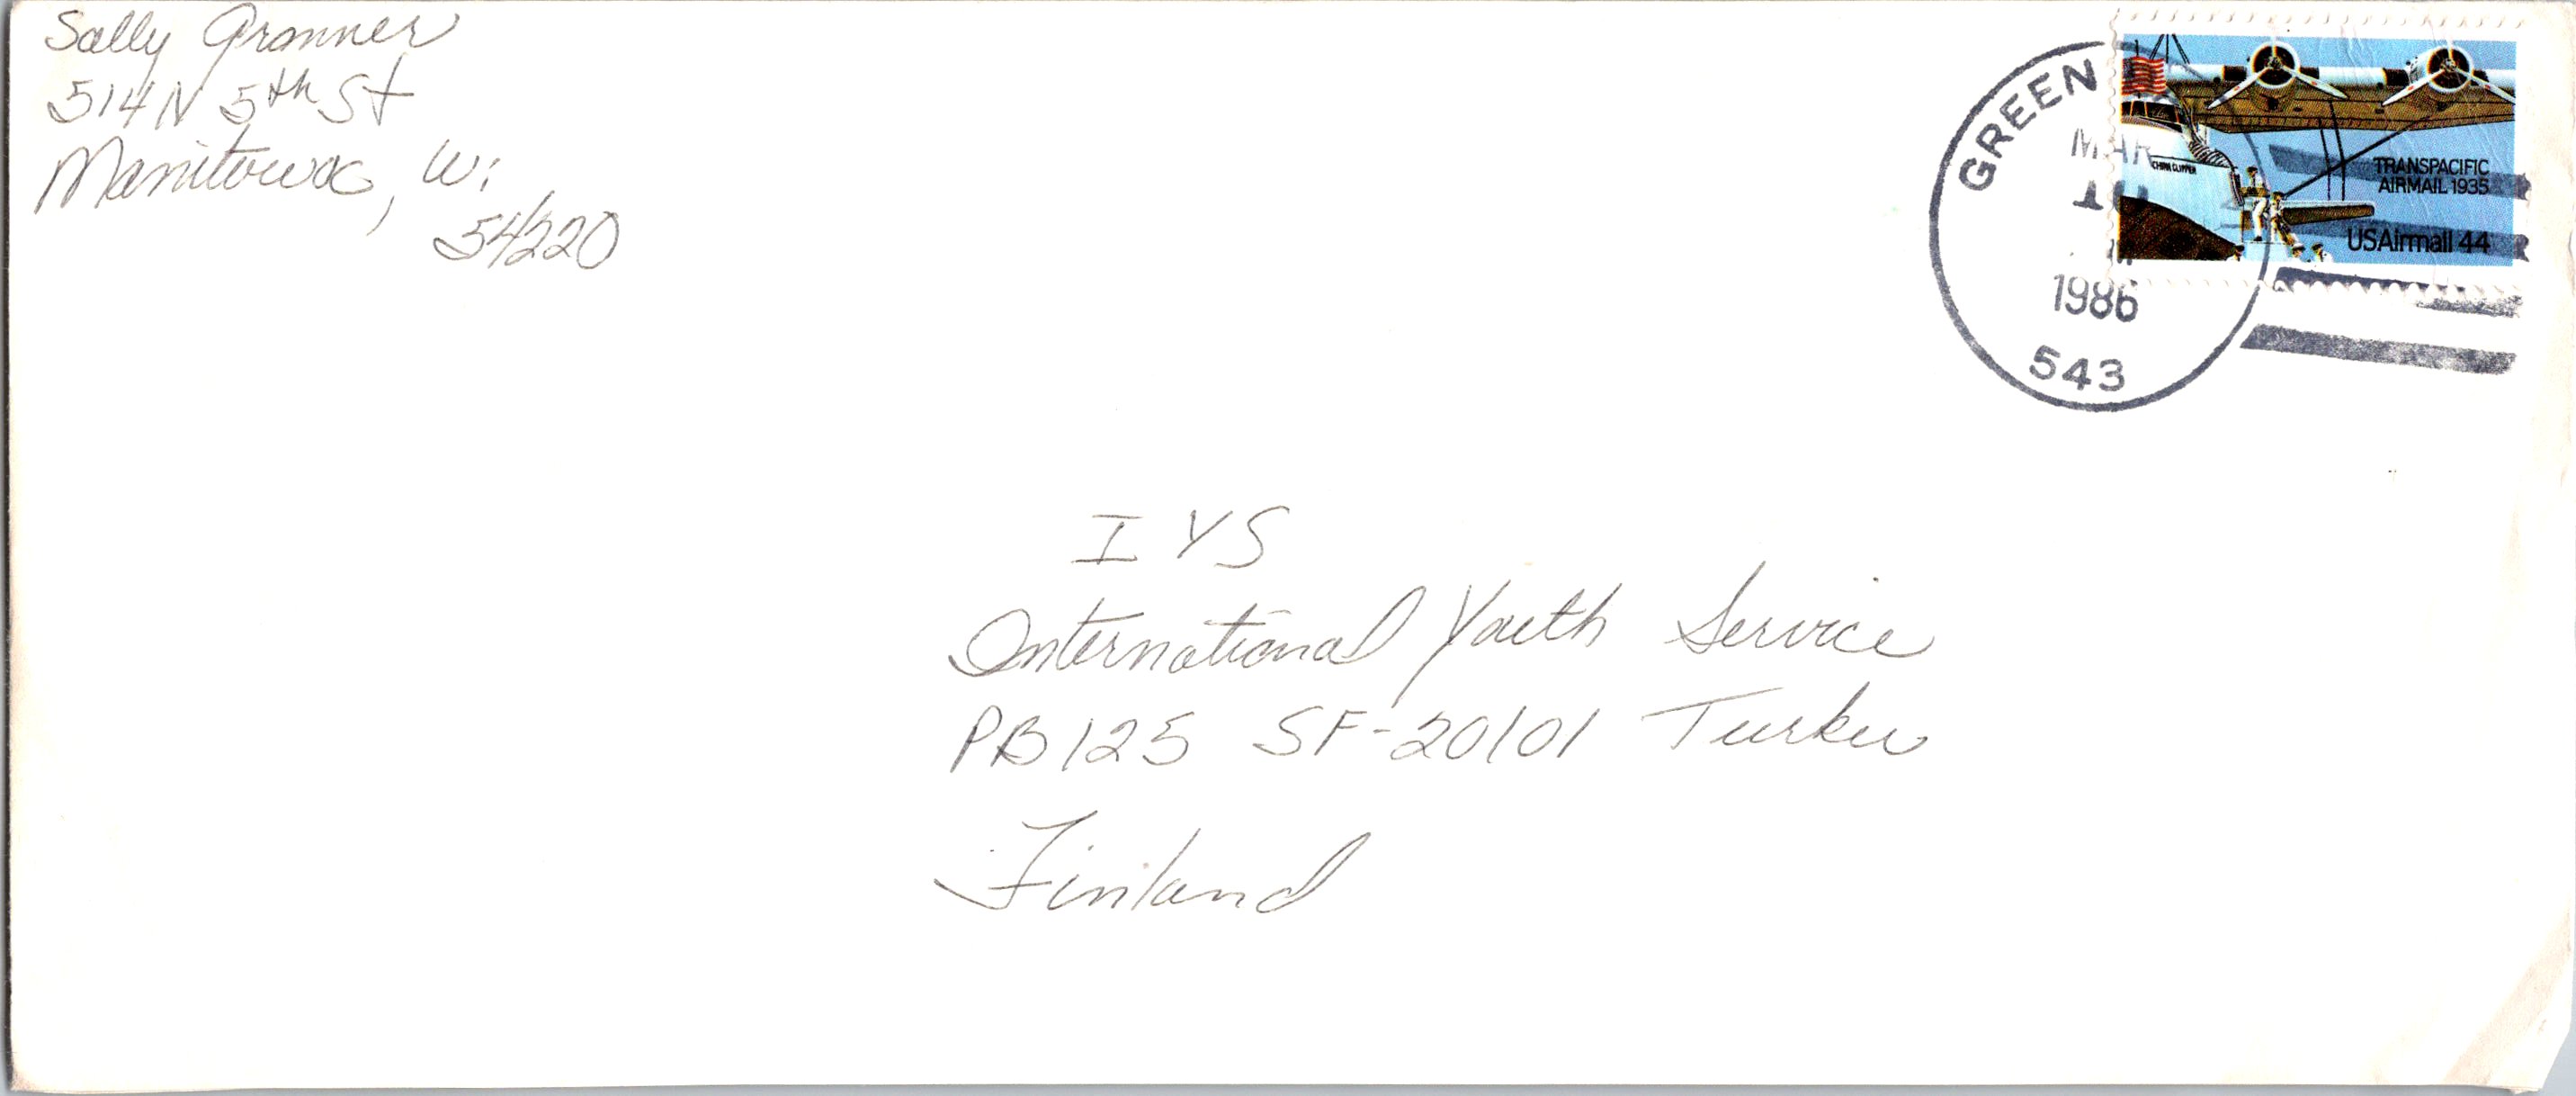 Sally Granner
514 N 5th St
Manitowoc, Wi
54220
GREEN
MAR
10
1986
543
CHINA CLIPPER
TRANSPACIFIC
AIRMAIL 1935
USAirmail 44
I Y S
International Youth Service
PB 125 SF-20101 Turku
Finland